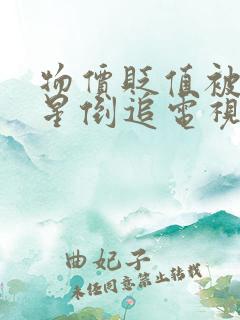 物價貶值被
星倒追電視
曲妃子
未经同意禁止转载